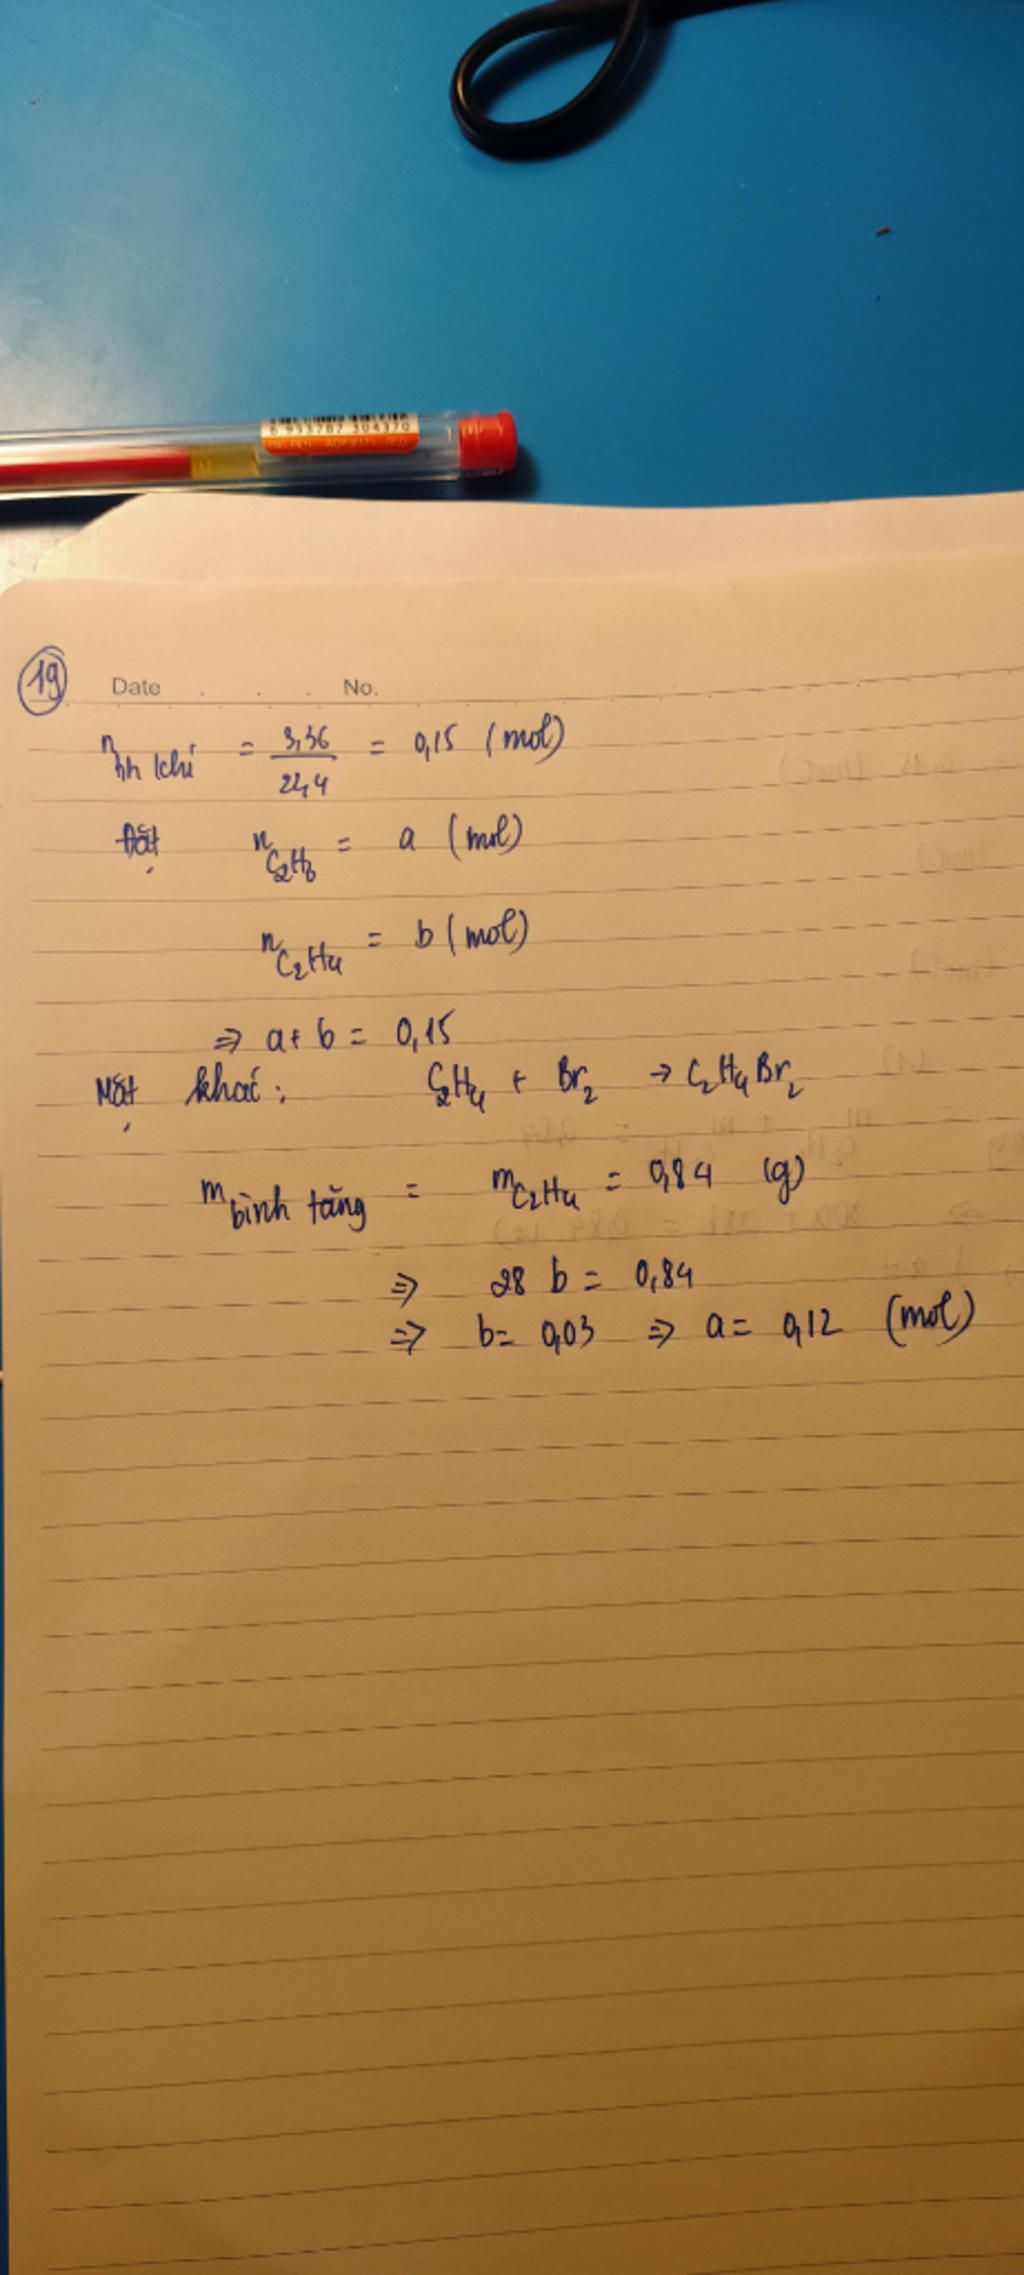 6 933787 304370
19
Date . . . No.
n hh khí = 3,36 / 22,4 = 0,15 (mol)
Đặt n C₂H₆ = a (mol)
n C₂H₄ = b (mol)
⇒ a + b = 0,15
Mặt khác: C₂H₄ + Br₂ → C₂H₄Br₂
m bình tăng = m C₂H₄ = 0,84 (g)
⇒ 28 b = 0,84
⇒ b = 0,03 ⇒ a = 0,12 (mol)